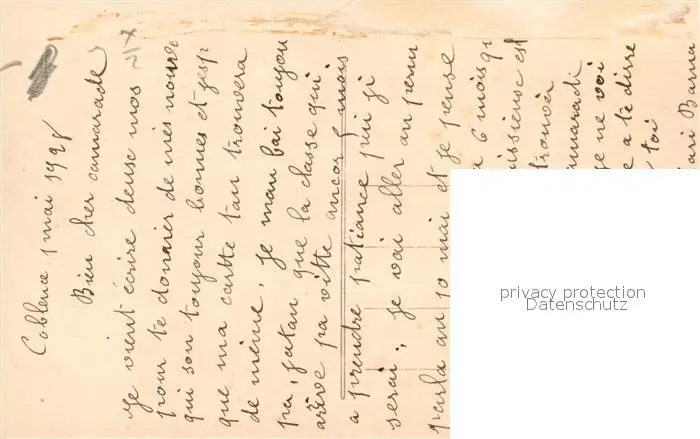 Coblence 1 mai 1928
Bien cher camarade
Je vient écrire deuse mos
pour te donnér de mes nouve
qui son toujour bonnes et gesp
que ma cartte tan trouvera
de même, je man fai toujou
pa, jatan que la classe qui
arêve pa vitte ancor 5 mois
a prendre patiance pui ji
serai, je vai aller an perm
parla au 10 mai et je pense
a 6 mois qu
uissieuse est
trouvér
amaradi
ge ne voi
e a te dirre
toi
privacy protection
Datenschutz